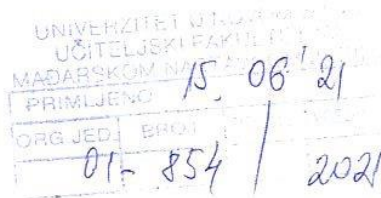 UNIVERZITET U NOVOM
UČITELJSKI FAKULTET
MAĐARSKOM NA
PRIMLJENO 15. 06' 21
ORG.JED. BROJ
01- 854 / 2021